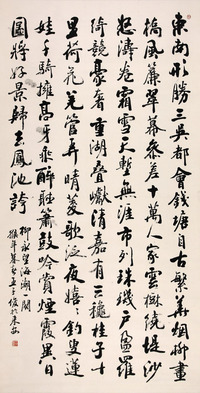 東南形勝三吳都會錢塘自古繁華烟柳畫
橋風簾翠幕參差十萬人家雲樹繞堤沙
怒濤卷霜雪天塹無涯市列珠璣戶盈羅
綺競豪奢重湖疊巘清嘉有三秋桂子十
里荷花羌管弄晴菱歌泛夜嬉嬉釣叟蓮
娃千騎擁高牙乘醉聽簫鼓吟賞煙霞異日
圖將好景歸去鳳池誇
柳永望海潮一闋
猴年暮春王